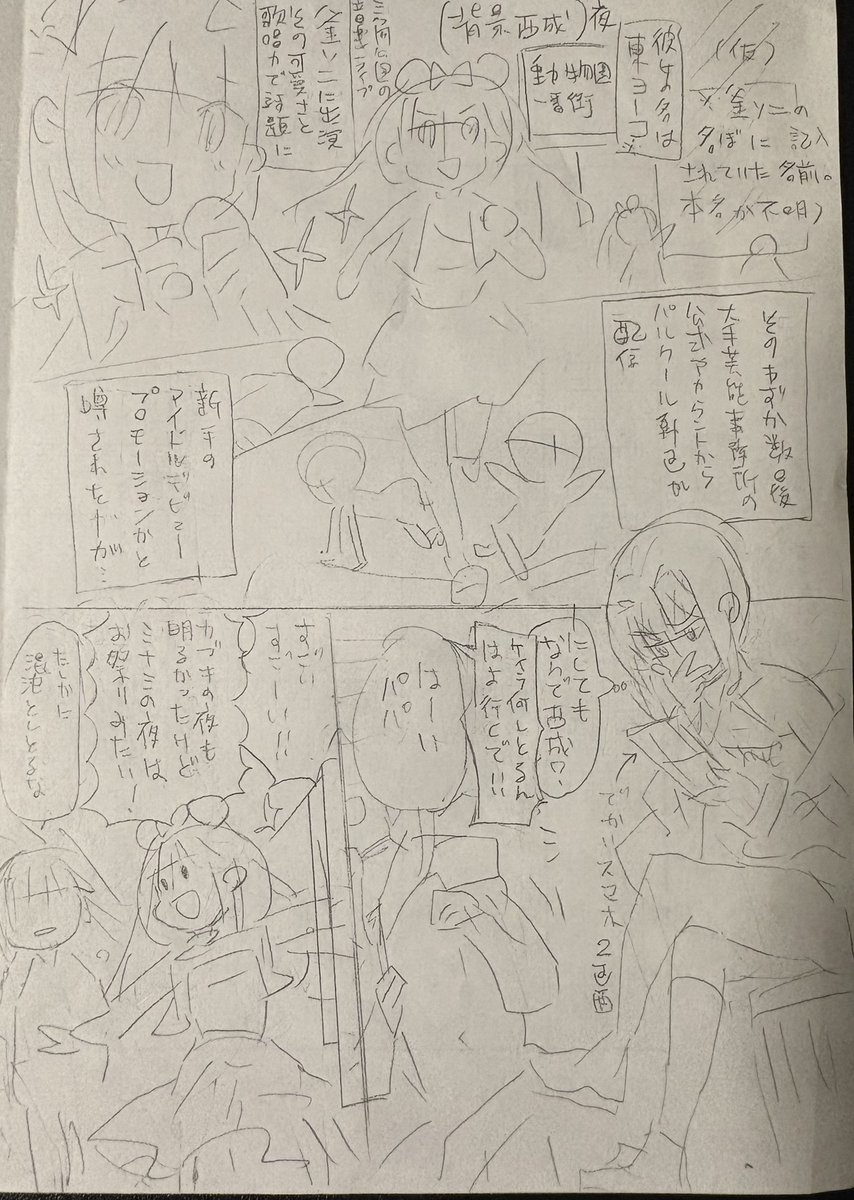 (仮)
※釜ソニの
名ぼに記入
されていた名前。
本名が不明)
彼女の名は
東ヨーコ※
(背景西成)夜
動物園
一番街
三角公園の
音楽ライブ
釜ソニに出演
その可愛さと
歌唱力で話題に
そのわずか数日後
大手芸能事務所の
公式アカウントから
パルクール動画が
配信
新手の
アイドルデビュー
プロモーションかと
噂されたが…
にしても
なんで西成?
ケイラ何しとるん
はよ行くで!!
でかいスマホ
2画面
はーい
パパ
すごい
すごーい!!
カブキの夜も
明るかったけど
ミナミの夜は、
お祭りみたい!
たしかに
混沌としとるな